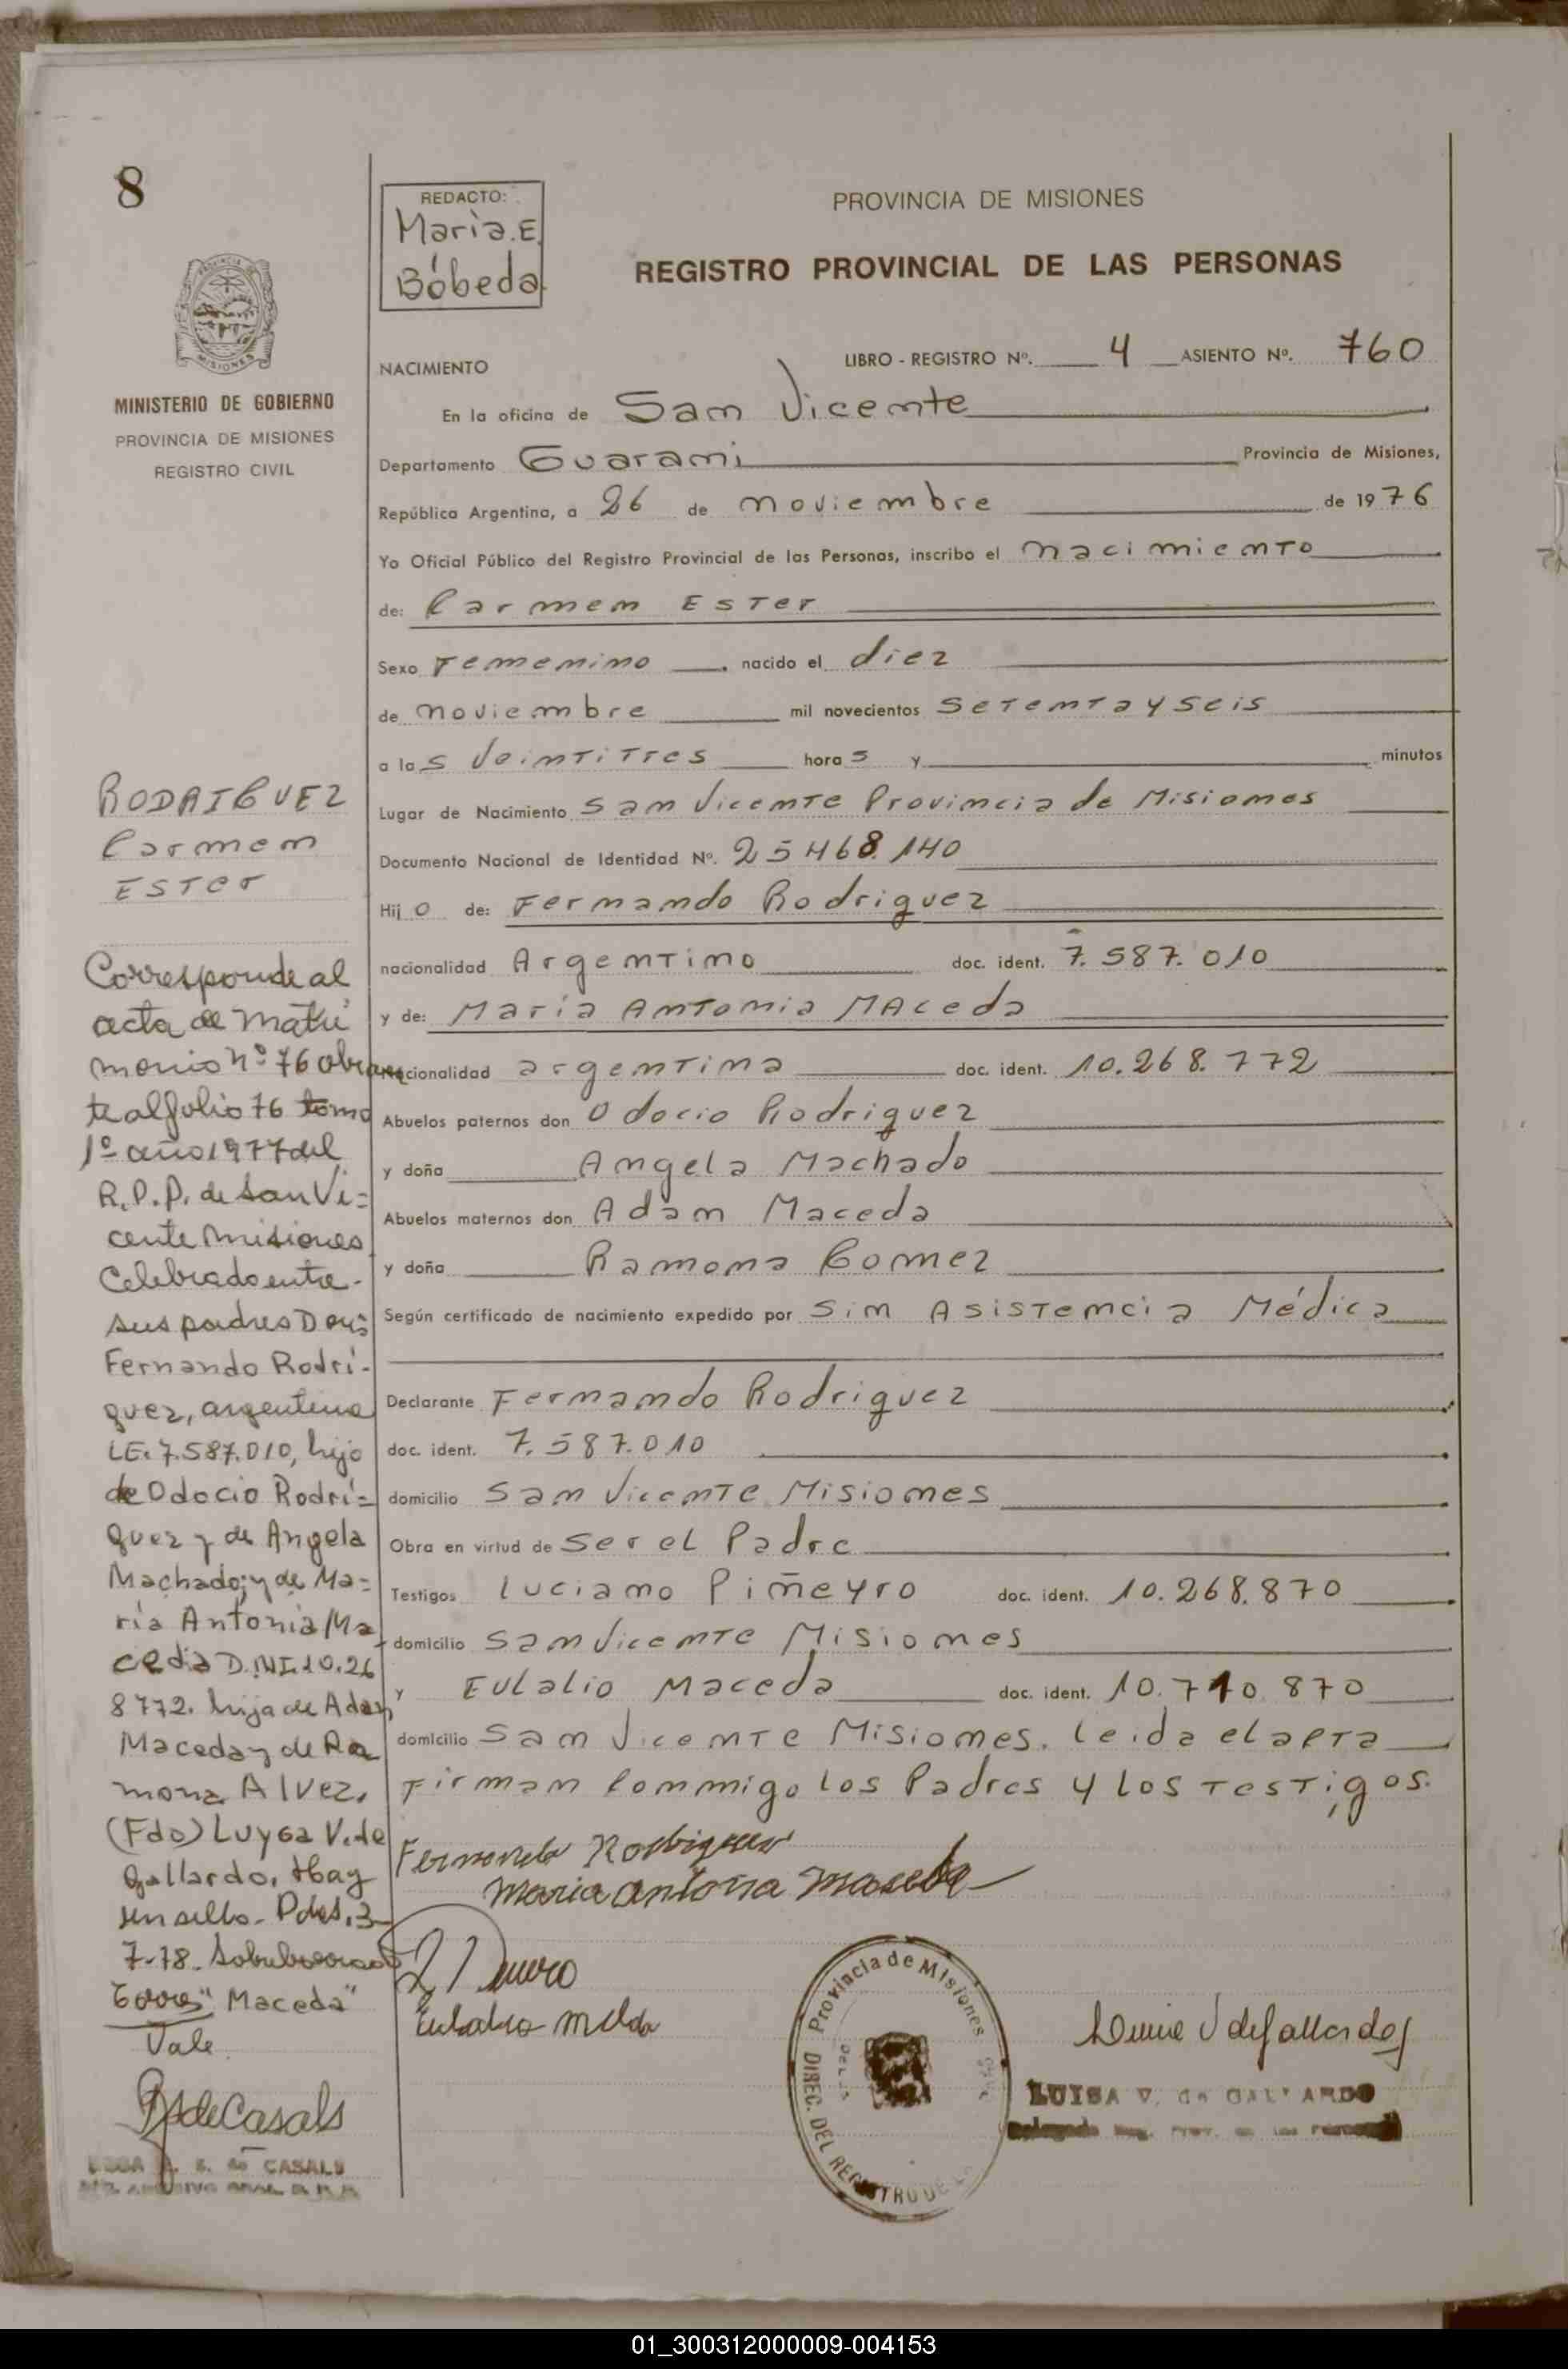 8
REDACTO:
Marìa.E.
Bóbeda.
PROVINCIA DE MISIONES
REGISTRO PROVINCIAL DE LAS PERSONAS
PROVINCIA DE
MISIONES
MINISTERIO DE GOBIERNO
PROVINCIA DE MISIONES
REGISTRO CIVIL
NACIMIENTO
LIBRO - REGISTRO Nº. 4 ASIENTO Nº. 760
En la oficina de San Vicente
Departamento Guarani Provincia de Misiones,
República Argentina, a 26 de noviembre de 1976
Yo Oficial Público del Registro Provincial de las Personas, inscribo el nacimiento
de: Carmen Ester
Sexo Femenino. nacido el diez
de noviembre mil novecientos setenta y seis
a las veintitres horas y minutos
Lugar de Nacimiento San Vicente Provincia de Misiones
Documento Nacional de Identidad Nº. 25468.140
Hijo de: Fernando Rodriguez
nacionalidad Argentino doc. ident. 7.587.010
y de: María Antonia MAceda
nacionalidad argentina doc. ident. 10.268.772
Abuelos paternos don Odocio Rodriguez
y doña Angela Machado
Abuelos maternos don Adan Maceda
y doña Ramona Gomez
Según certificado de nacimiento expedido por Sin Asistencia Médica
Declarante Fernando Rodriguez
doc. ident. 7.587.010
domicilio San Vicente Misiones
Obra en virtud de ser el Padre
Testigos Luciano Piñeyro doc. ident. 10.268.870
domicilio San Vicente Misiones
y Eulalio Maceda doc. ident. 10.710.870
domicilio San Vicente Misiones. leida el acta
Firman conmigo los Padres y los testigos.
Fernando Rodriguez
Maria antonia Maceda
RODRIGUEZ
Carmen
ESTer
Corresponde al
acta de matri
monio nº 76 obran
te al folio 76 tomo
1º año 1977 del
R.P.P. de San Vi=
cente Misiones
Celebrado entre
sus padres Don:
Fernando Rodrí-
guez, argentino
LE. 7.587.010, hijo
de Odocio Rodrí=
guez y de Angela
Machado; y de Ma=
ría Antonia Ma
ceda D.NI.10.26
8772. hija de Adan
Maceda y de Ra
mona Alvez.
(Fdo) Luysa V. de
Gallardo. Hay
un sello. Pdas. 3-
7-78. Sobreborrado
"Maceda"
Vale.
de Casals
DE CASALS
Provincia de Misiones
DIREC. DEL REGISTRO DE L
V de Gallardo
LUISA V. de GALLARDO
01_300312000009-004153